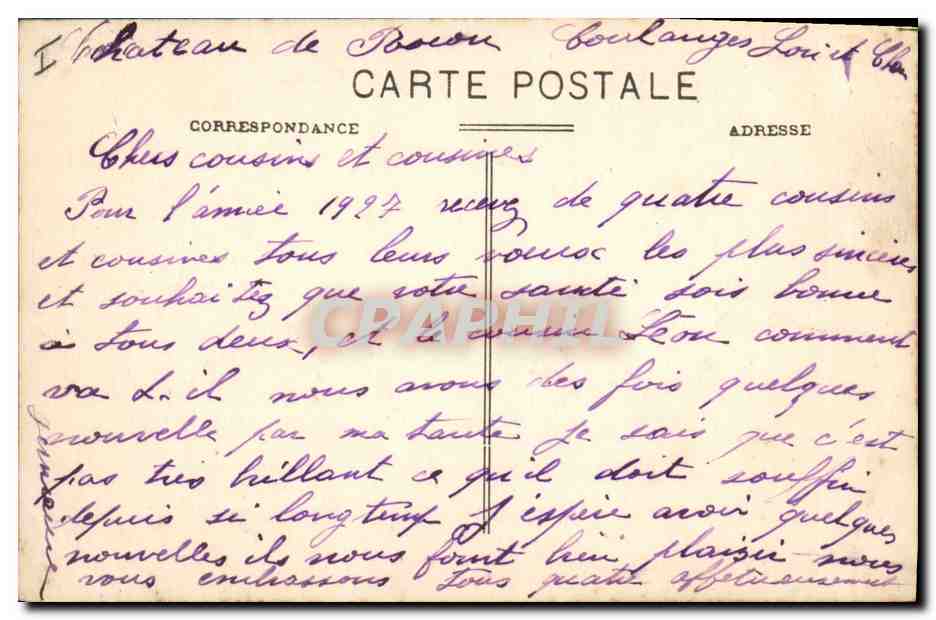 Chateau de Rocon Coulanges Loir et Cher
CARTE POSTALE
CORRESPONDANCE
ADRESSE
Chers cousins et cousines
Pour l'année 1927 recevez de quatre cousins
et cousines tous leurs voeux les plus sinceres
et souhaitez que votre santé sois bonne
CPAPHIL
à tous deux, et le cousin Léon comment
va t-il nous avons des fois quelques
nouvelle par ma tante je sais que c'est
pas très brillant ce qu'il doit souffrir
depuis si longtemp J'espère avoir quelques
nouvelles ils nous font bien plaisir nous
vous embrassons tous quatre affetueusement